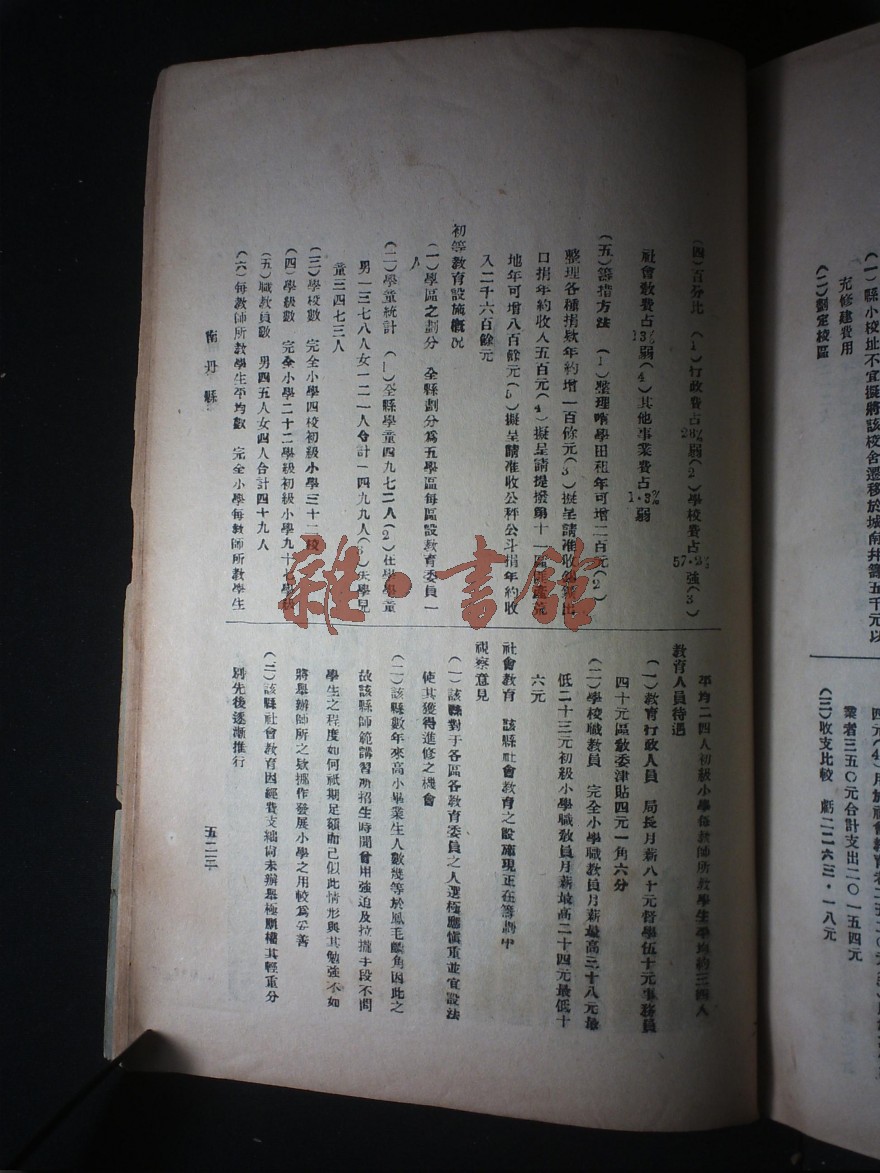 (一)縣小校址不宜擬將該校舍遷移於城南並籌五千元以
充修建費用
(二)劃定校區
業者三五〇元合計支出二〇一五四元
(三)收支比較 虧二二一六三·一八元
(四)百分比 (1)行政費占28%弱(2)學校費占57·2%強(3)
社會教費占13%弱(4)其他事業費占1·3%弱
(五)籌措方法 (1)整理嘥學田租年可增二百元(2)
整理各種捐欵年約增一百餘元(3)擬呈請准收
口捐年約收入五百元(4)擬呈請提撥第十一區
地年可增八百餘元(5)擬呈請准收公秤公斗捐年約收
入二千六百餘元
初等教育設施概况
(一)學區之劃分 全縣劃分為五學區每區設教育委員一
人
(二)學童統計 (1)全縣學童四九七二人(2)在學學童
男一三七八人女一二一人合計一四九九人(3)失學兒
童三四七三人
(三)學校數 完全小學四校初級小學三十二校
(四)學級數 完全小學二十二學級初級小學九十七學級
(五)職教員數 男四五人女四人合計四十九人
(六)每教師所教學生平均數 完全小學每教師所教學生
平均二四人初級小學每教師所教學生平均約三四人
教育人員待遇
(一)教育行政人員 局長月薪八十元督學伍十元事務員
四十元區教委津貼四元一角六分
(二)學校職教員 完全小學職教員月薪最高三十八元最
低二十三元初級小學職教員月薪最高二十四元最低十
六元
社會教育 該縣社會教育之設施現正在籌劃中
視察意見
(一)該縣對于各區各教育委員之人選極應慎重並宜設法
使其獲得進修之機會
(二)該縣數年來高小畢業生人數幾等於鳳毛麟角因此之
故該縣師範講習所招生時聞曾用強迫及拉攏手段不問
學生之程度如何祇期足額而已似此情形與其勉強不如
將舉辦師所之欵挪作發展小學之用較為妥善
(三)該縣社會教育因經費支絀尚未辦舉極願權其輕重分
別先後逐漸推行
南丹縣
五二三
雜·書館